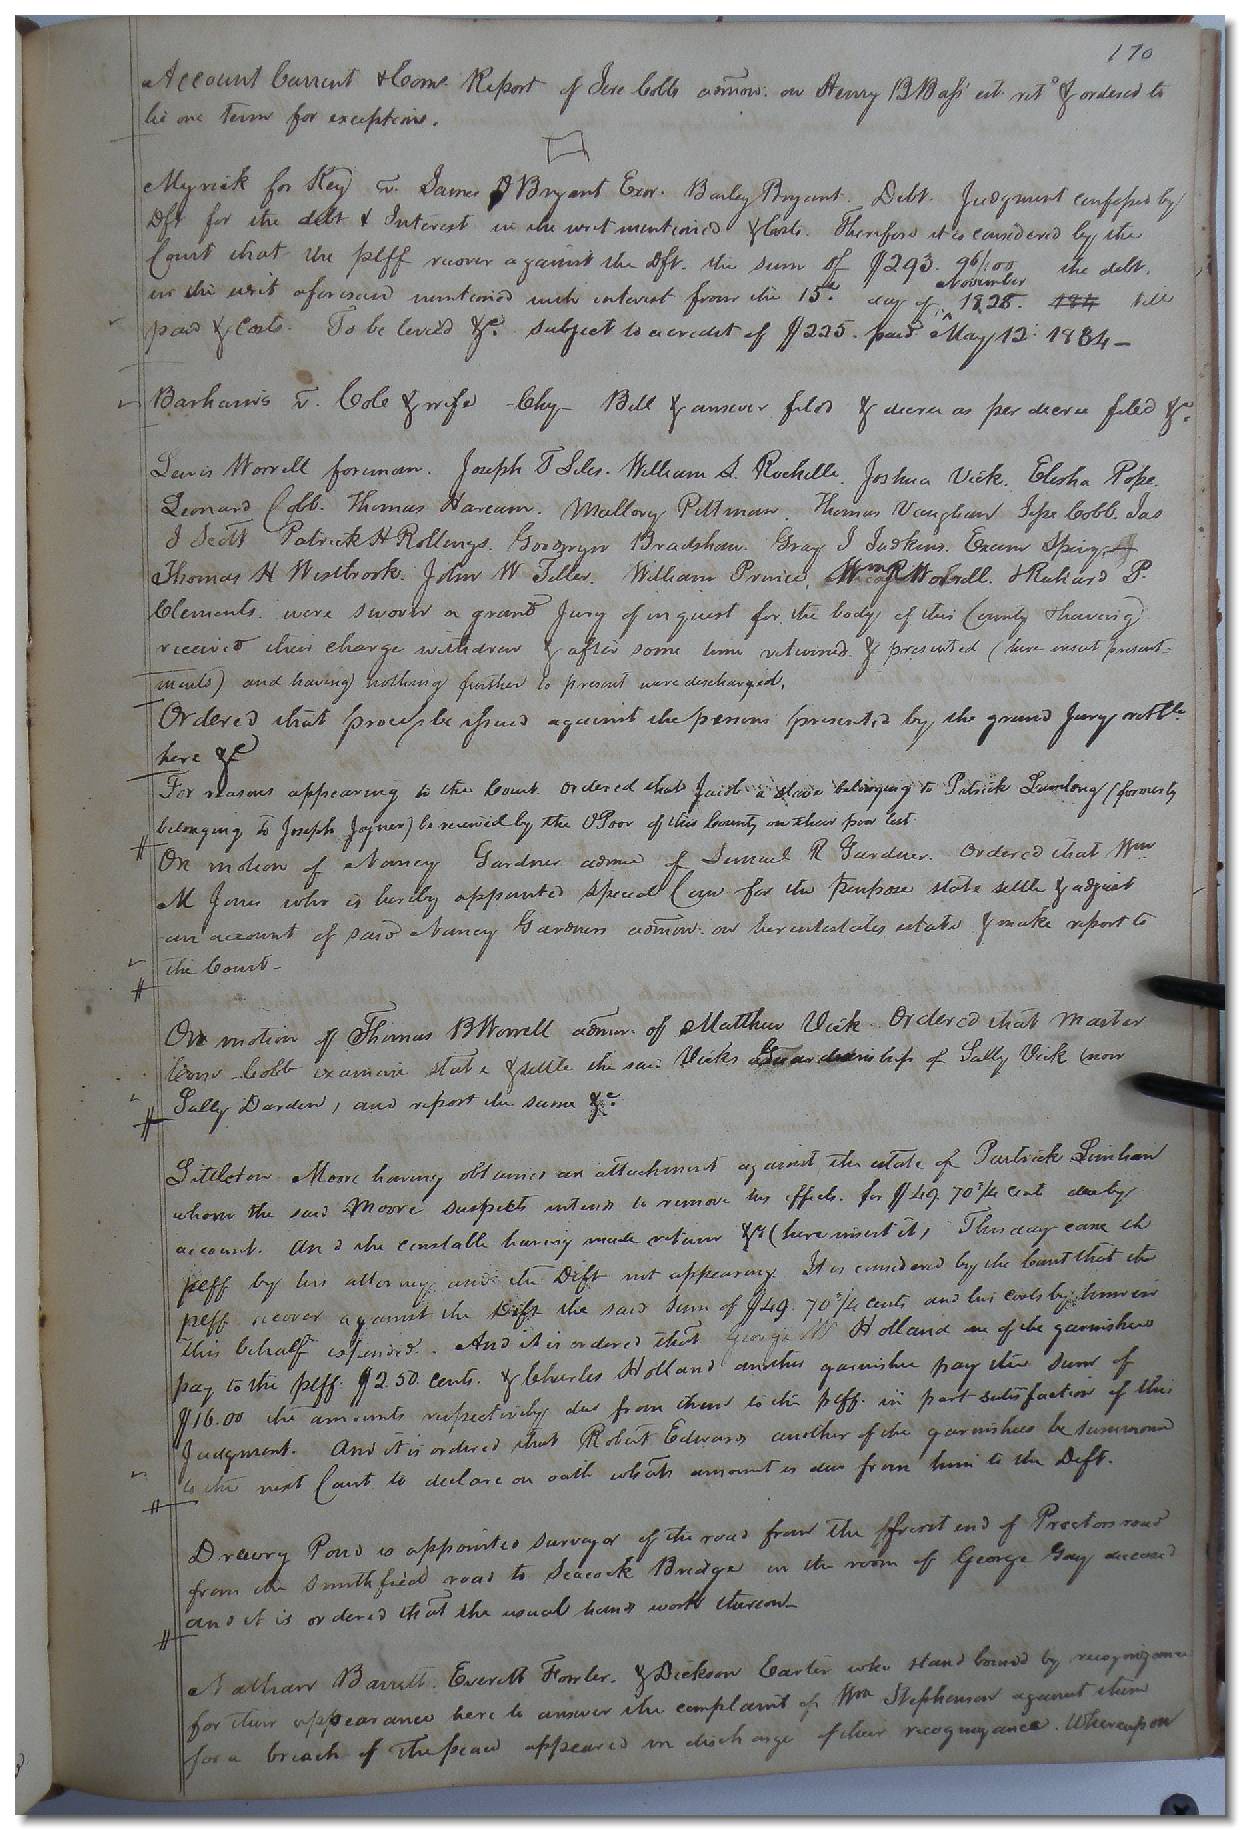 170
Account Current & Com. Report of Jere Cobb admor. on Henry B Bass est. ret.d & ordered to
lie one Term for exceptions.
Myrick for Key v. James D Bryant Exor. Barley Bryant. Debt. Judgment confessed by
Dft for the debt & Interest in the writ mentioned & Costs. Therefore it is considered by the
Court that the plff recover against the Dft. the sum of $293. 96/100 the debt.
in the writ aforesaid mentioned with interest from the 15th day of November 1828. till
paid & Costs. To be levied &c. subject to a credit of $225. paid May 12: 1834 –
Barham's v. Cole & wife – Chy – Bill & answer filed & decree as per decree filed &c.
Lewis Worrell foreman. Joseph T Liles. William A. Rochelle. Joshua Vick. Elisha Pope.
Leonard Cobb. Thomas Harcum. Mallory Pittman. Thomas Vaughan Jesse Cobb. Jas
J Scott Patrick H Rollings. Goodwyn Bradshaw. Gray J Judkins. Exum Spivy
Thomas H Westbrook. John W Teller. William Prince, Wm R Worrell. & Richard P.
Clements. were sworn a grand Jury of inquest for the body of this County & having
received their charge withdrew & after some time returned & presented (here insert present-
ments) and having nothing further to present were discharged.
Ordered that process be issued against the persons presented by the grand Jury rettble
here &c
For reasons appearing to the Court ordered that Jacob a slave belonging to Patrick (formerly
belonging to Joseph Joyner) be received by the O Poor of this County on their poor list
On motion of Nancy Gardner admx of Lemuel R Gardner. Ordered that Wm
M Jones who is hereby appointed special Com for the purpose state settle & adjust
an account of said Nancy Gardners admon. on her intestates estate & make report to
the Court –
On motion of Thomas B Worrell admr. of Matthew Vick. Ordered that Master
Comr Cobb examine state & settle the said Vicks Guardianship of Sally Vick (now
Sally Darden) and report the same &c.
Littleton Moore having obtained an attachment against the estate of Partrick Linihan
whom the said Moore suspects intends to remove his effects. for $49. 70 3/4 cents due by
account. And the constable having made return &c (here insert it) This day came the
plff by his attorney and the Deft not appearing. It is considered by the Court that the
plff recover against the Deft the said sum of $49. 70 3/4 cents and his costs by him in
this behalf expended. And it is ordered that George W Holland one of the garnishees
pay to the plff. $2.50. cents. & Charles Holland another garnishee pay the sum of
$16.00 the amounts respectively due from them to the plff. in part satisfaction of this
Judgment. And it is ordered that Robert Edwards another of the garnishees be summoned
to the next Court to declare on oath what amount is due from him to the Deft.
Drewry Pond is appointed surveyor of the road from the first end of Proctors road
from the Smithfield road to Seacock Bridge in the room of George Gay deceased
and it is ordered that the usual hands work thereon –
Nathan Barrett. Everett Fowler. & Dickson Carter who stand bound by recognizance
for their appearance here to answer the complaint of Wm Stephenson against them
for a breach of the peace appeared in discharge of their recognizance. Whereupon